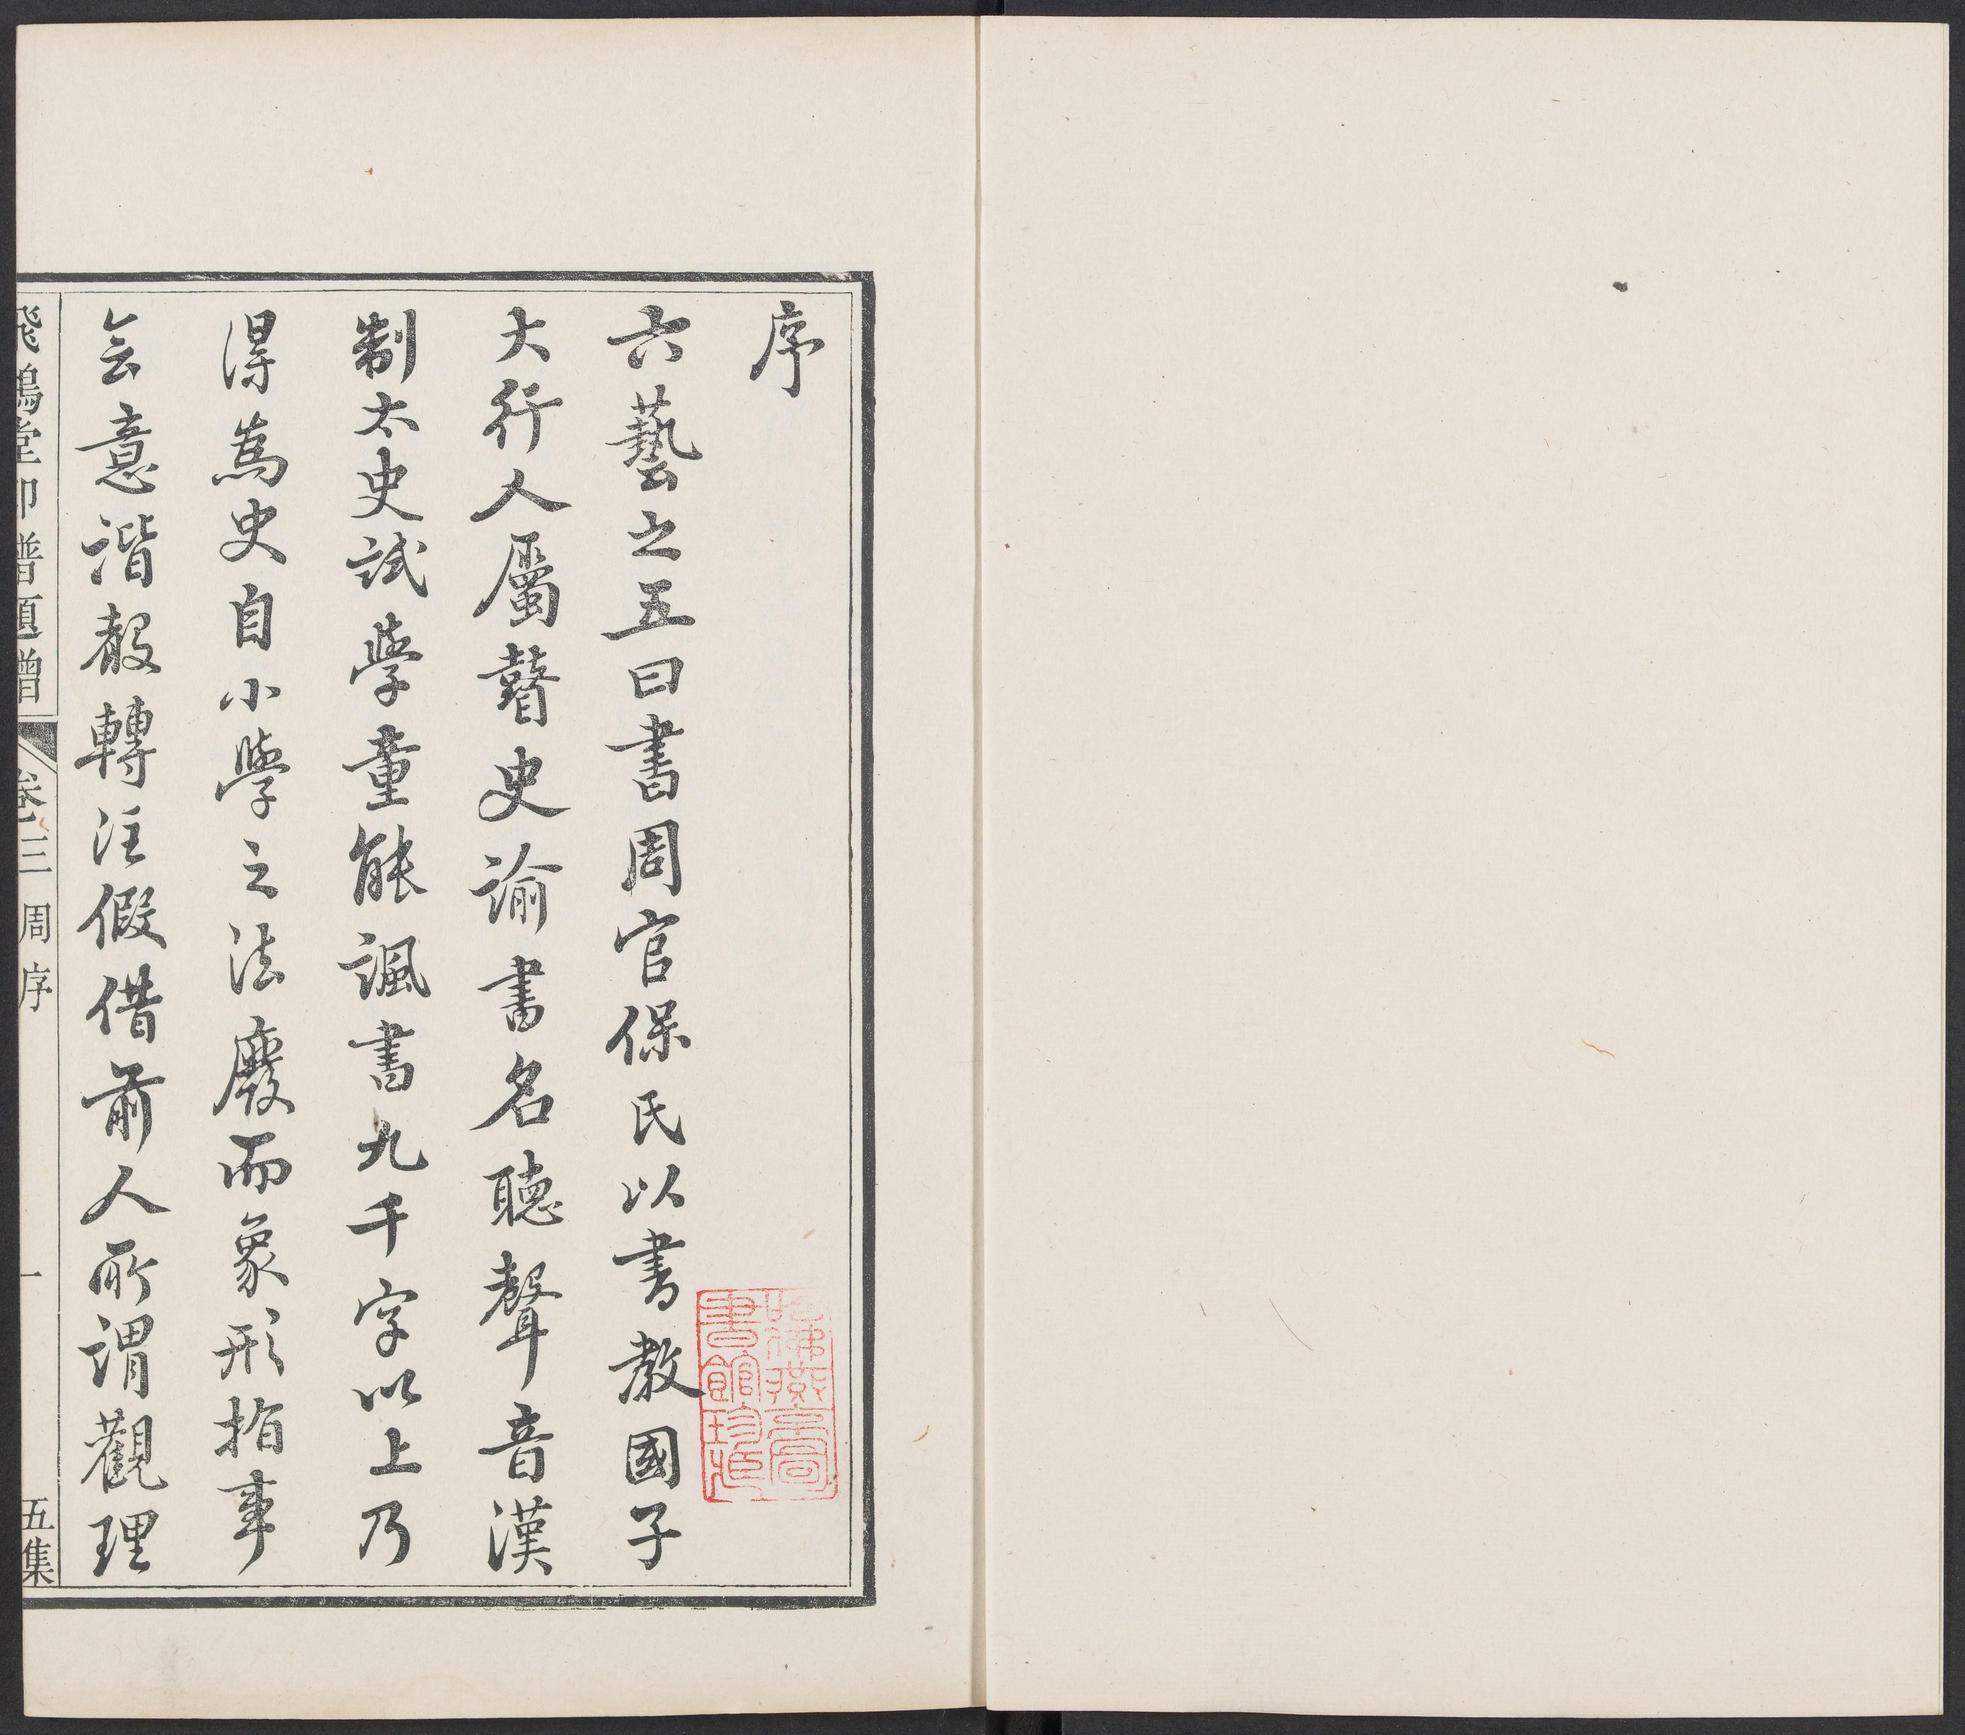 序
六藝之五曰書周官保氏以書教國子
大行人屬瞽史諭書名聽聲音漢
制太史試學童能諷書九千字以上乃
得為史自小學之法廢而象形指事
会意谐𣪊轉注假借前人所謂觀理
飛鴻堂印譜題贈
卷三 周序
一
五集
哈佛燕京圖書館珍藏